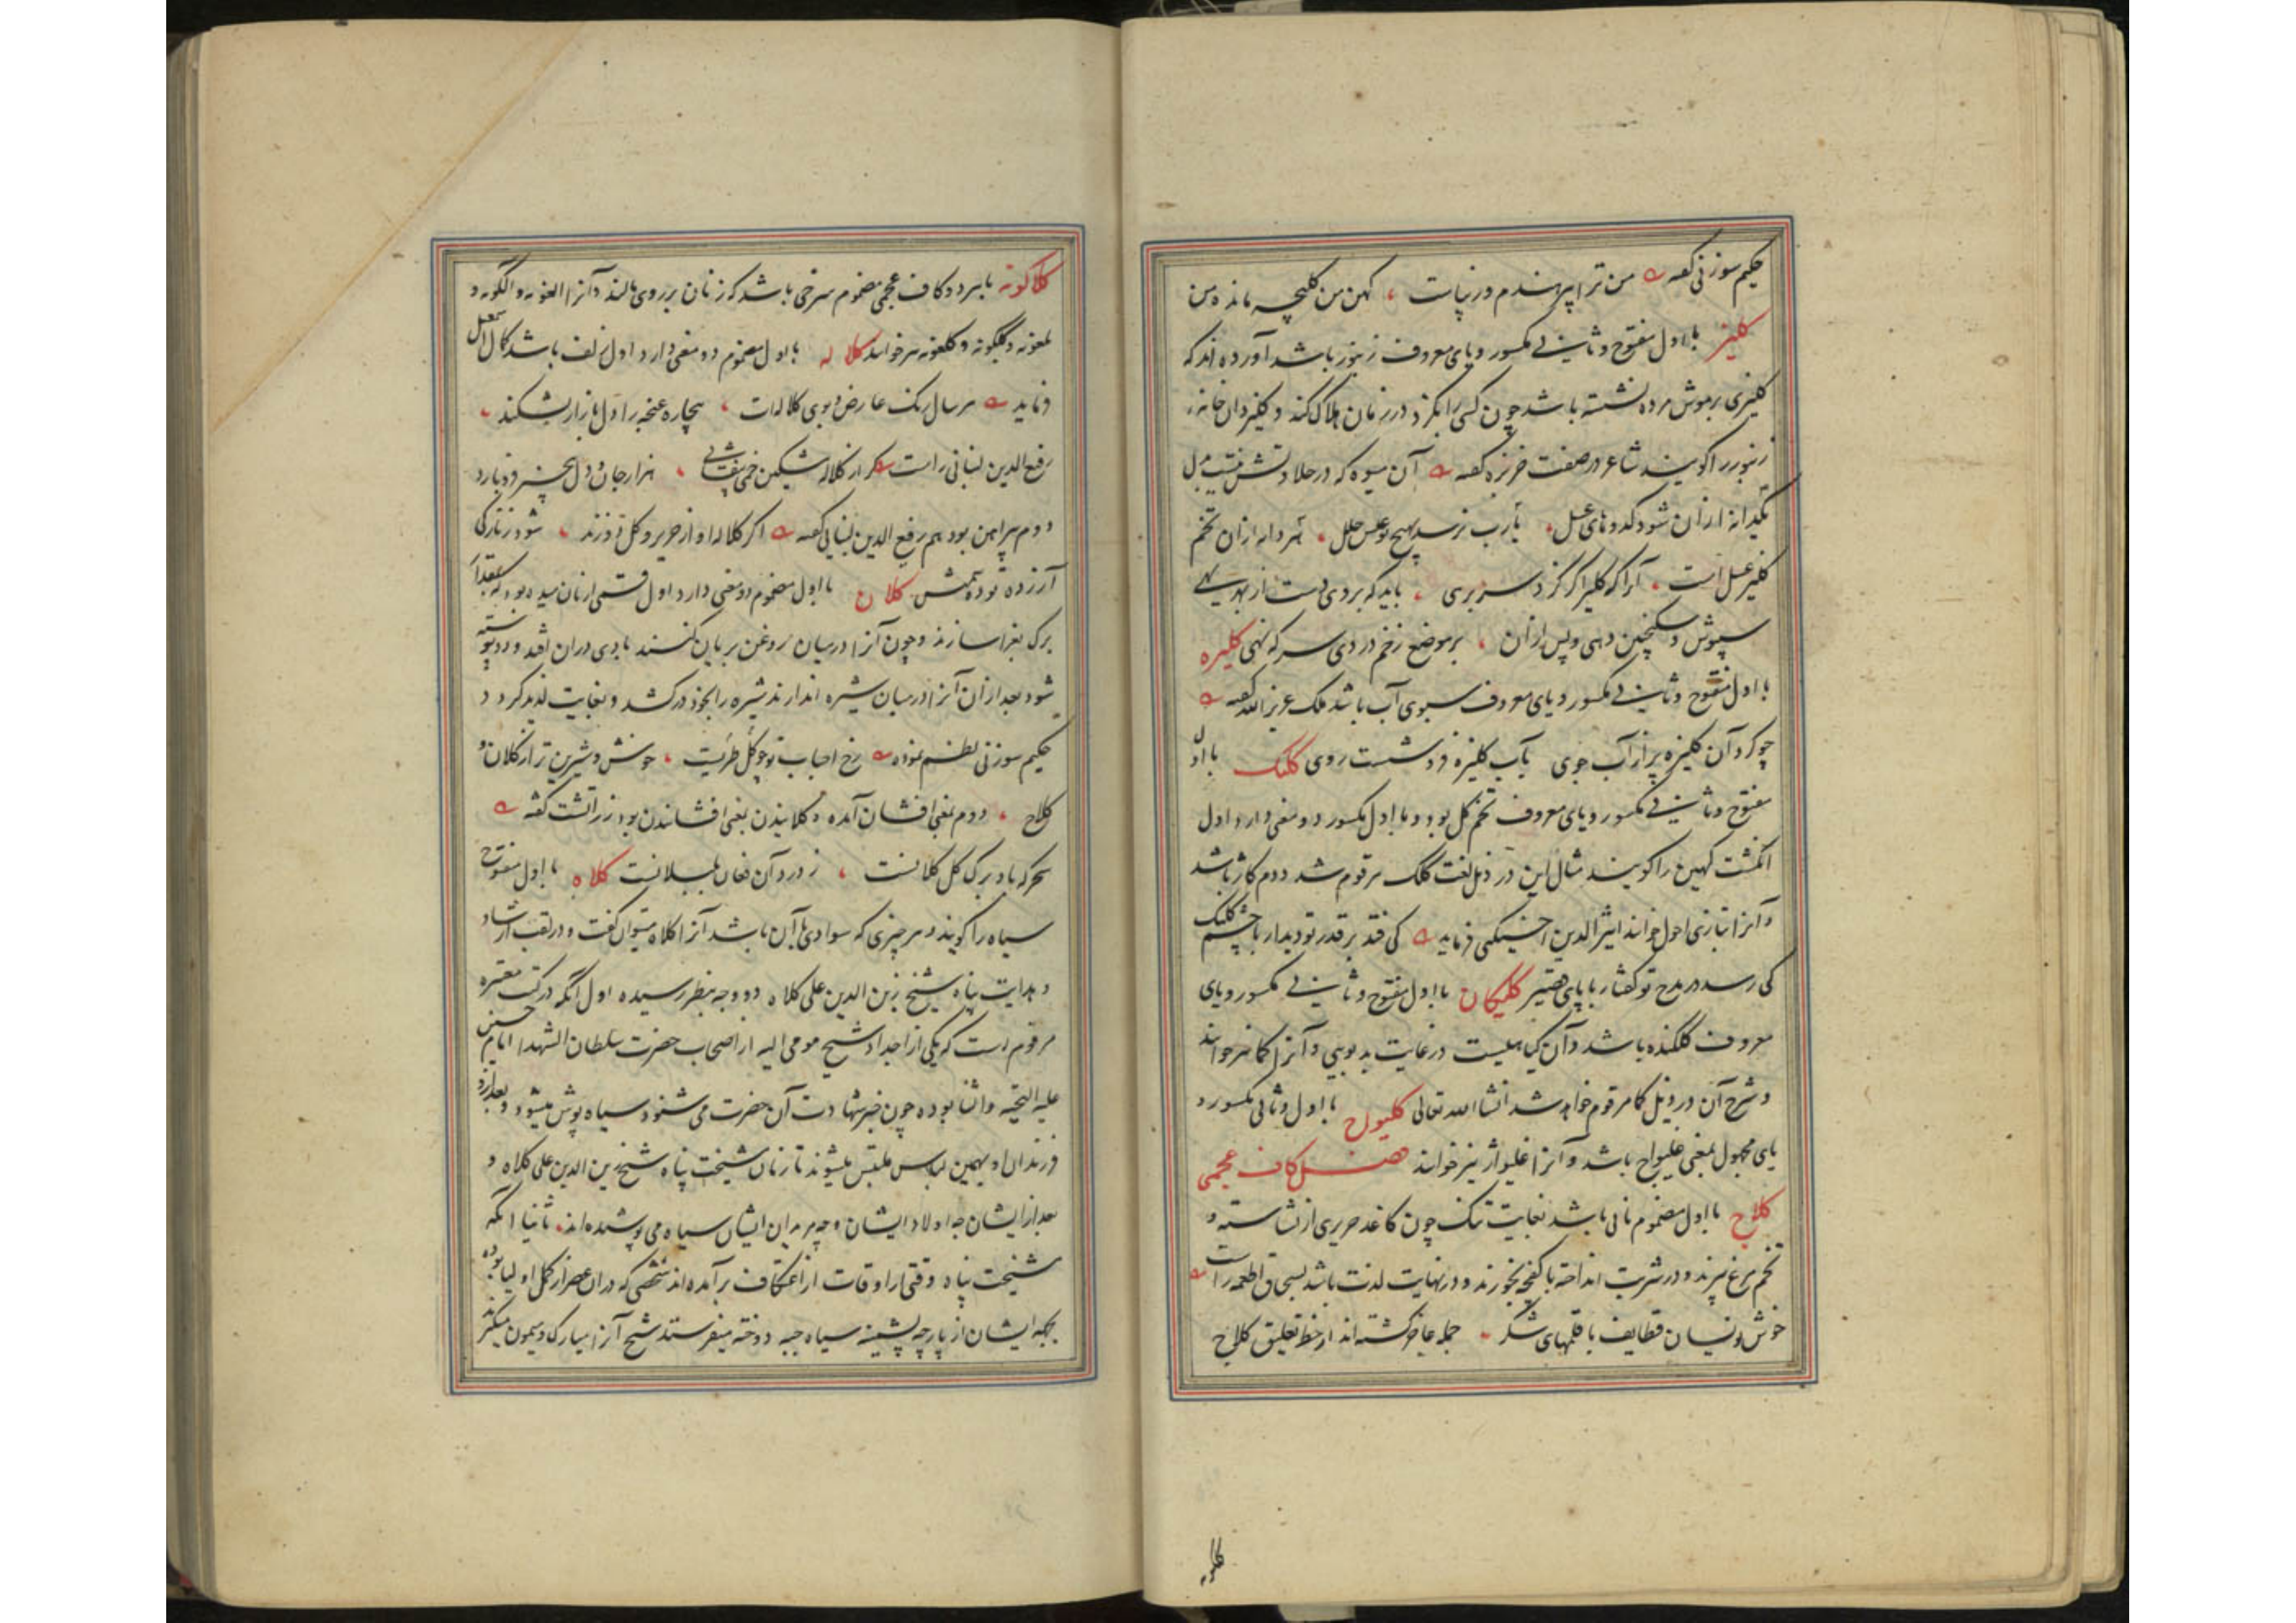 حکیم سوزنی گفته من ترا پیر هندم در نیاست کهن من کلیچه مانده من
کلیز با اول مفتوح و ثانی مکسور و یای معروف زنبور باشد آورده اند که
کلیزی بر موش مرده نشسته باشد چون کسی را بگزد در زمان هلاک کند و کلیزدان خانه
زنبور را گویند شاعر در صفت خربزه گفته آن میوه که در حلاوتش نیست بدل
یکدانه از آن شود کدوهای عسل یارب نرسد بهیچ نوعش خلل هر دانه از آن تخم
کلیز عسل است آنرا که کلیز اگر گزد سر بسری باید که بروی دست از بهر بهی
سپوش و سکنجبین دهی و پس از آن بر موضع زخم در دمی سرکه نهی کلیزه
با اول مفتوح و ثانی مکسور و یای معروف سبوی آب باشد ملک عزیز الله گفته
چو کرد آن کلیزه پر از آب جوی بآب کلیزه فرو شست روی کلیک با اول
مفتوح و ثانی مکسور و یای معروف تخم گل بود و با اول مکسور دو معنی دارد اول
انگشت کهین را گویند مثال این در ذیل لغت کلک مرقوم شد دوم کاژ باشد
و آنرا بتازی احول خوانند اثیر الدین اخسیکتی فرماید کی فتد بر قدر تو دیدار با چشم کلیک
کی رسد در مدح تو گفتار با پای هتیر کلیکان با اول مفتوح و ثانی مکسور و یای
معروف کلکنده باشد و آن گیاهیست در غایت بدبویی و آنرا کما نیز خوانند
و شرح آن در ذیل کما مرقوم خواهد شد انشاالله تعالی کلیواج با اول و ثانی مکسور و
یای مجهول بمعنی غلیواج باشد و آنرا غلیواژ نیز خوانند فصل کاف عجمی
کلاج با اول مضموم نانی باشد بغایت تنک چون کاغذ حریری از نشاسته و
تخم مرغ پزند و در شربت انداخته با کفچه بخورند و در نهایت لذت باشد بسحاق اطعمه راست
خوش نویسان قطایف با قلمهای شکر جمله عاجز گشته اند از خط تعلیق کلاج
کلاکونه
کلاکونه بابرد و کاف عجمی مضموم سرخی باشد که زنان بر روی مالند و آنرا الغونه و الگونه و
لغونه و گلگونه و گلغونه نیز خوانند کلاله با اول مضموم دو معنی دارد اول زلف باشد کمال اسمعیل
فرماید هر سال رنگ عارض و بوی کلاله ات بیچاره غنچه را دل بازار بشکند
رفیع الدین لنبانی راست گر از کلاله مشکین خمی بیفشانی هزار جان و دل از هر خمی فرو بارد
دوم پیراهن بود هم رفیع الدین لنبانی گفته اگر کلاله او از حریر و گل دوزند شود ز نازکی
آزرده توده سمنش کلان با اول مضموم دو معنی دارد اول قسمی از نان میده بود که بمقدار
برک بغرا سازند و چون آنرا در میان روغن بریان کنند بادی در آن افتد و دو پوسته
شود بعد از آن آنرا در میان شیره اندازند شیره را بخود در کشد و بغایت لذیذ گردد
حکیم سوزنی نظم نموده رخ احباب تو چو گل طریست خوش و شیرین تر از کلان و
کلاج دوم بمعنی افشان آمده و کلانیدن بمعنی افشاندن بود زراتشت گفته
بحر که باد برک گل کلانست ز درد آن فغان بلبلانست کلاه با اول مفتوح
سیاه را گویند و هر چیزی که سوادی با آن باشد آنرا کلاه میتوان گفت و در لقب ارشاد
و هدایت پناه شیخ زین الدین علی کلاه دو وجه بنظر رسیده اول آنکه در کتب معتبره
مرقوم است که یکی از اجداد شیخ مومی الیه از اصحاب حضرت سلطان الشهدا امام حسین
علیه التحیة والثنا بوده چون خبر شهادت آن حضرت می شنود سیاه پوش میشود و بعد ازو
فرزندان او بهمین لباس ملبس میشوند تا زمان شیخت پناه شیخ زین الدین علی کلاه و
بعد از ایشان چه اولاد ایشان و چه مریدان ایشان سیاه می پوشیده اند ثانیا آنکه
شیخت پناه وقتی از اوقات از اعتکاف بر آمده اند شخصی که در آن عصر از کمل اولیا بوده
بجهه ایشان از پارچه پشمینه سیاه جبه دوخته میفرستند شیخ آنرا مبارک و میمون میگیرند